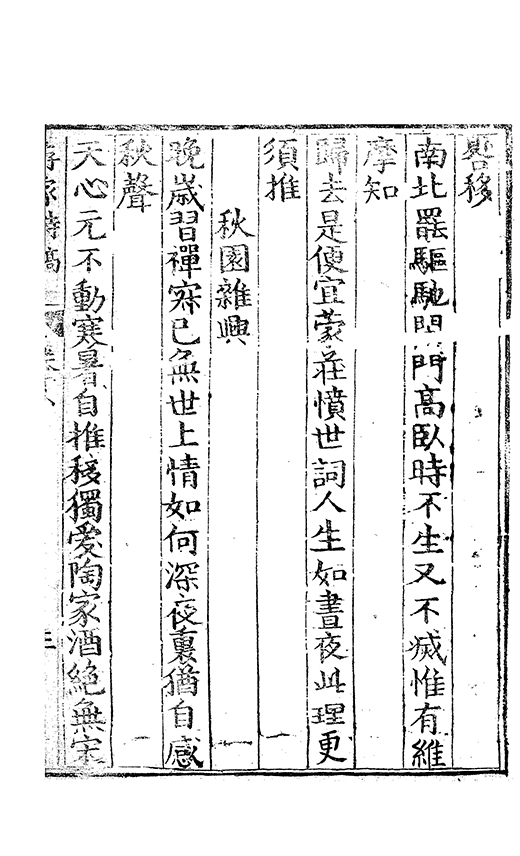 移
南北罷驅馳閉門高臥時不生又不滅惟有維
摩知
歸去是便宜蒙莊憤世詞人生如晝夜此理更
須推
秋園雜興
晚歲習禪寂已無世上情如何深夜裏猶自感
秋聲
天心元不動寒暑自推移獨愛陶家酒絕無宋
家詩稿
三